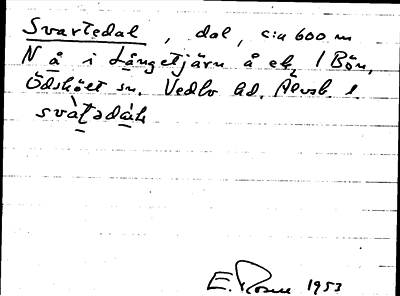 Svartedal, dal, c:a 600 m
N å i Långetjärn å ek. 1/2 Bön,
Ödskölt sn. Vedbo hd. Älvsb. l.
svàt̠ədàl̠
E. Rosen 1953